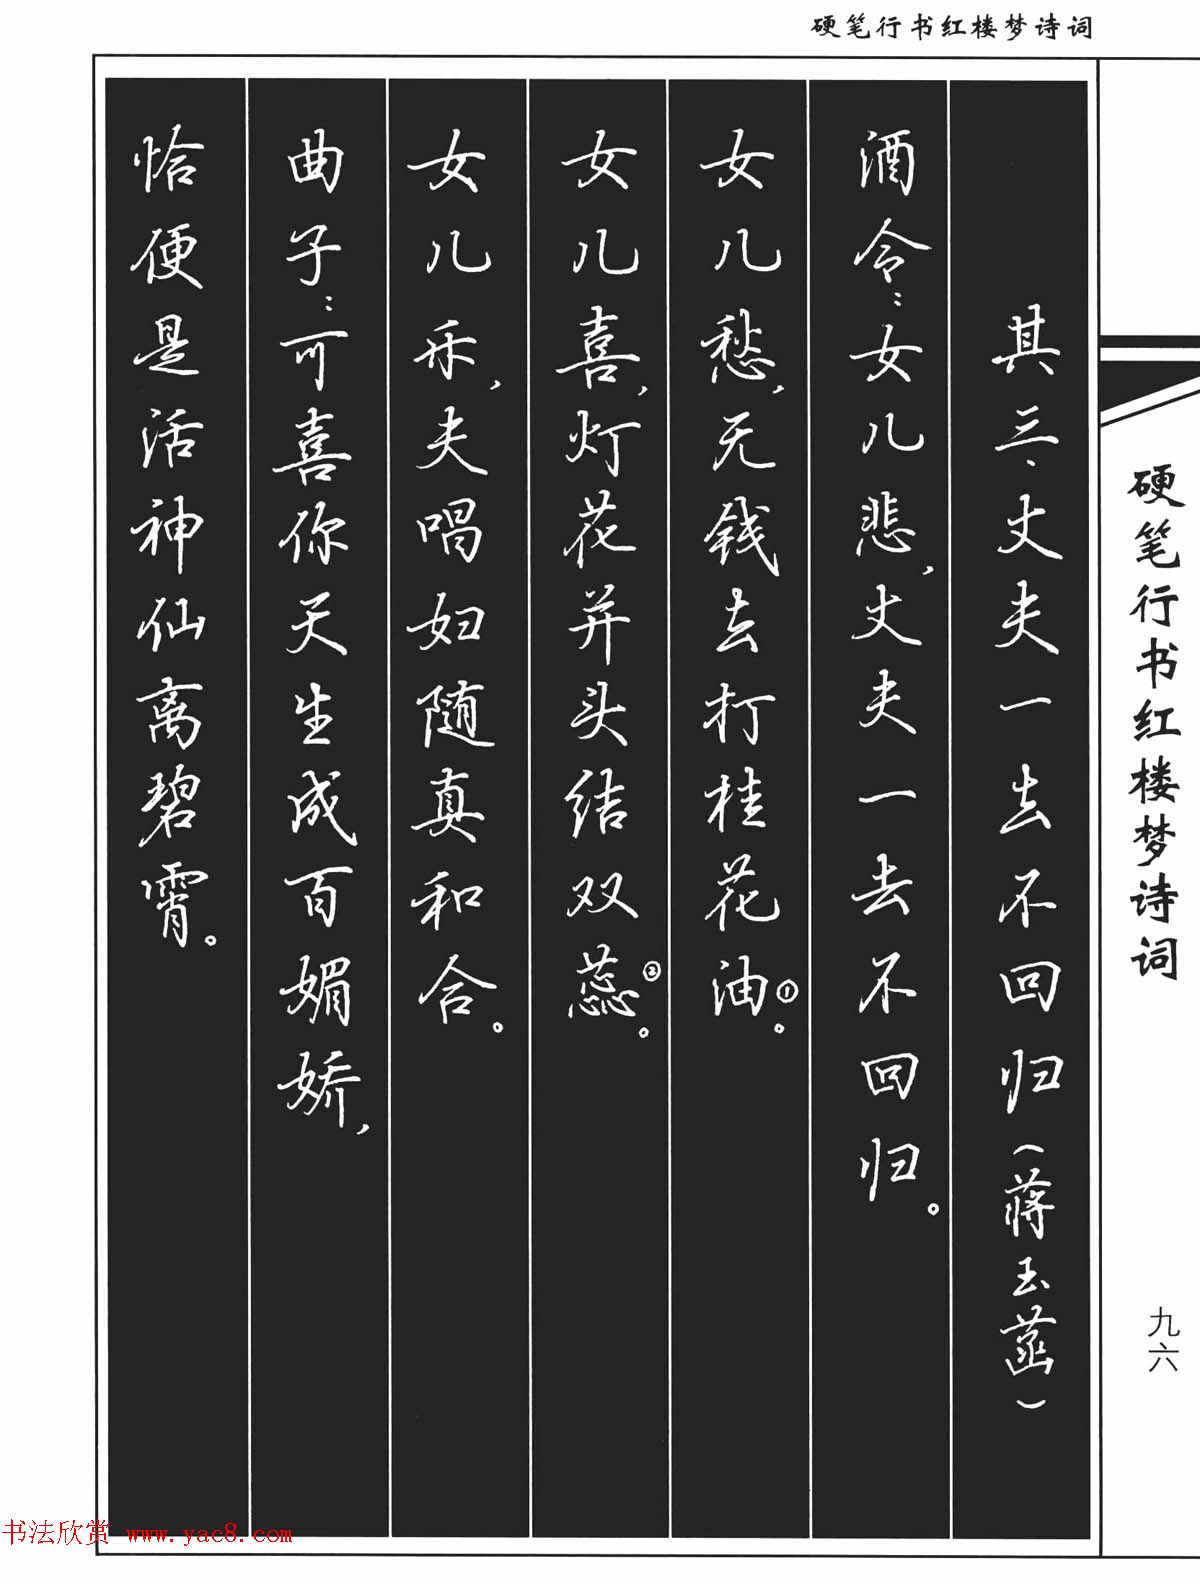 硬笔行书红楼梦诗词
其三、丈夫一去不回归(蒋玉菡)
酒令：女儿悲，丈夫一去不回归。
女儿愁，无钱去打桂花油①。
女儿喜，灯花并头结双蕊②。
女儿乐，夫唱妇随真和合。
曲子：可喜你天生成百媚娇，
恰便是活神仙离碧霄。
硬笔行书红楼梦诗词
九六
书法欣赏 www.yac8.com